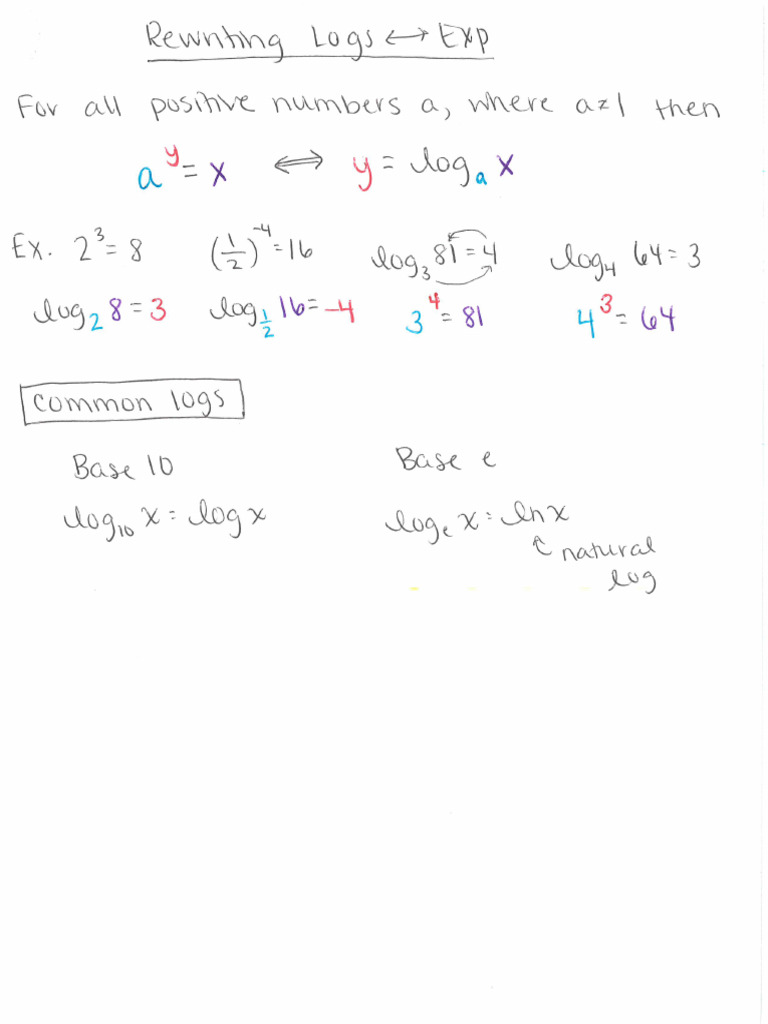 Rewriting Logs ↔ Exp
For all positive numbers a, where a≠1 then
a^y = x ⟺ y = log_a x
Ex. 2^3 = 8 (1/2)^-4 = 16 log_3 81 = 4 log_4 64 = 3
log_2 8 = 3 log_1/2 16 = -4 3^4 = 81 4^3 = 64
common logs
Base 10 Base e
log_10 x = log x log_e x = ln x
natural
log